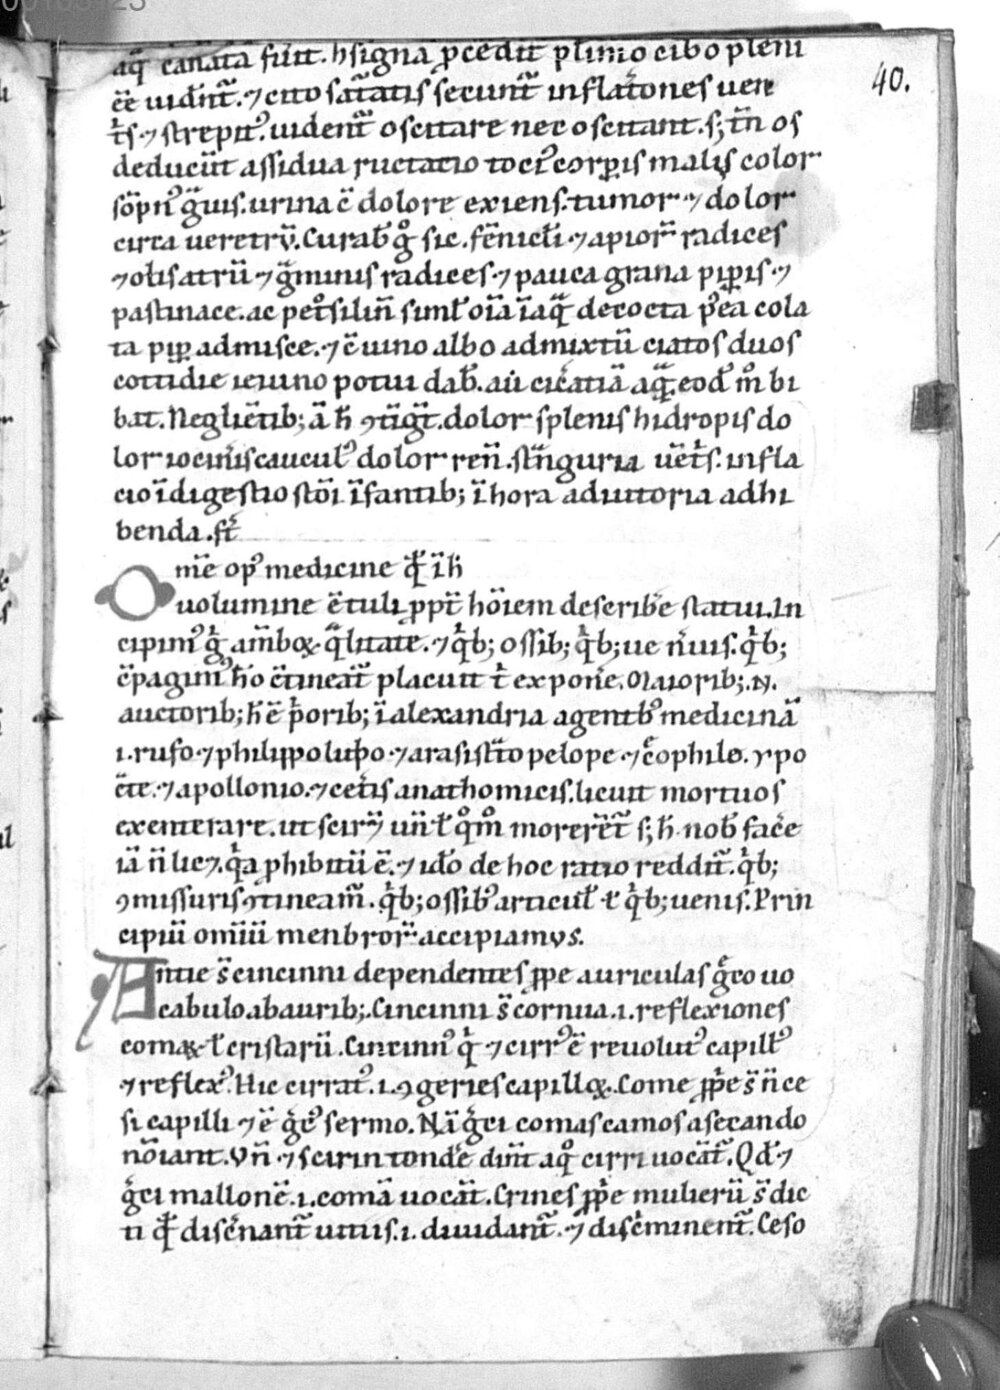 40.
aq̄ canata fuīt. h signa p̄cedūt plimo cibo pleni
ēē uidn̄t̄. ⁊ cito sat̄atis secunt̄ inflatōnes uen
t̄s ⁊ strepit᷒. uident̄ oscitare nec oscitant. s; tn̄ os
deducūt assidua ructatio toci᷒ corꝑis malis color
sōpn᷒ g̃uis. urina c̄ dolore exiens. tumor ⁊ dolor
circa ueretrū. Curab̄ gͦ sic. fēnicłi ⁊ apior̄ radices
⁊ olisatrū ⁊ g̃minis radices ⁊ pauca grana piꝑis ⁊
pastinace. ac petͦsilin̄ simł oīa ī aq̄ decocta p᷒ea cola
ta piꝑ admisce. ⁊ c̄ uino albo admixtū ciatos duos
cottidie ieiuno potui dab̄. aū aq̄. eod̄ mͦ bi
bat. Neglīetib; ā h̄ ꝯtīgt̄. dolor splenis hidropis do
lor iocin̄is caucul᷒ dolor ren̄. st̃nguria uēt̄s. infla
cio īdigestio stōi īfantib; ī hora adiutoria adhi
benda. st̄
Om̄e op᷒ medicine q̄ ī h̄
uolumine ētuli ꝓpt̄ hōiem describe statui. In
cipim᷒ gͥ amboꝝ q̃litate. ⁊ qͥb; ossib; qͥb; ue n̄uis. qͥb;
c̄pagini᷒ hͦo c̄tineat̄ placuit t̄ expone. Maiorib; .N.
auctorib; h̄ ē p̄orib; ī alexandria agentib᷒ medicinā
.i. rufo ⁊ philippo lupo ⁊ arasist̃to pelope ⁊ eͦophilo. ypo
c̃te. ⁊ apollonio. ⁊ cet̄is anathomicis. licuit mortuos
exenterare. ut scirēt un̄ ł qͦmͦ morerēt̄ s; h̄ nob̄ face
iā n̄ lic⁊. qͥa ꝓhibitū ē. ⁊ idͦo de hoc ratio reddit̄. qͥb;
ꝯmissuris ꝯtineam̄. qͥb; ossib᷒ articuł ł qͥb; uenis. Prin
cipiū omīū menbror̄ accipiamus.
Antie s̄ cincinni dependentes ꝓpe auriculas gͤco uo
cabulo ab aurib;. Cincinni s̄ cornua .i. reflexiones
comaꝝ ł cristarū. Cincinn᷒ qͥ ⁊ cirr᷒ ē reuolut᷒ capill᷒
⁊ reflex᷒. Hic cirrat᷒ .i. ꝯgeries capilloꝝ. Come ꝓpe s̄ n̄ ce
si capilli ⁊ ē gͤc᷒ sermo. Nā gͤci comas camos a secando
nōiant. Vn̄ ⁊ scirin tonde dn̄t a qͦ cirri uocāt̄. Qd̄ ⁊
gͤci mallonē .i. comā uocāt. Crines ꝓpe mulierū s̄ dic
ti q̄ discͤnant̄ uittis .i. diuidant̄. ⁊ discͤminent̄. Ceso